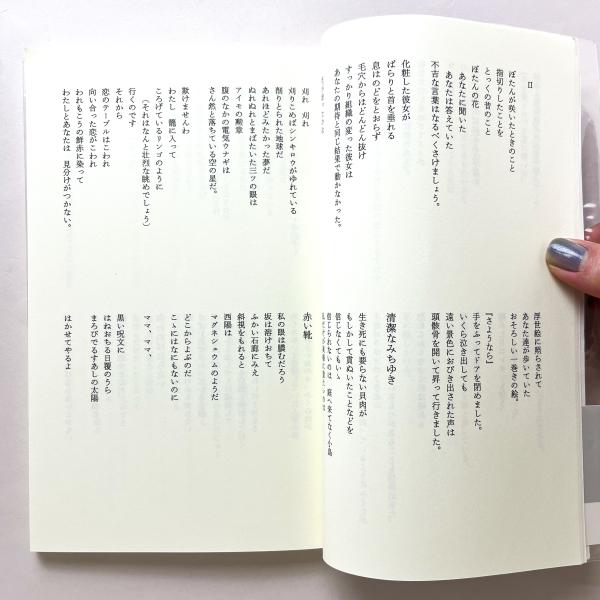 II
ぼたんが咲いたときのこと
指切りしたことを
とっくの昔のこと
ぼたんの花
あなたに聞いた
あなたは答えていた
不吉な言葉はなるべくさけましょう。
化粧した彼女が
ばらりと首を垂れる
息はのどをとおらず
毛穴からはどんどん抜け
すっかり組織の変った彼女は
あなたの期待と同じ結果で動かなかった。
浮世絵に照らされて
あなた達が歩いていた
おそろしい一巻きの絵。
『さようなら』
手をふってドアを閉めました。
いくら泣き出しても
遠い景色におびき出された声は
頭骸骨を開いて昇って行きました。
清潔なみちゆき
生き死にも要らない貝肉が
もしかして貫ぬいたことなどを
信じなくてもいゝ
信じられないのは 庭へ来てなく小鳥
刈れ 刈れ
刈りこめばシンキロウがゆれている
削りとられた地球だ
あれほどみたかった夢だ
ぬれぬれとまばたいた三ツの眼は
アイモの勲章
腹のなかの電気ウナギは
さん然と落ちている空の星だ。
歎けませんわ
わたし 籠に入って
ころげているリンゴのように
(それはなんと壮烈な眺めでしょう)
行くのです
それから
恋のテーブルはこわれ
向い合った恋がこわれ
われもこうの鮮赤に染って
わたしとあなたは 見分けがつかない。
赤い靴
私の眼は膿むだろう
坂は溶けおちて
ふかい石廊にみえ
斜視をもれると
西陽は
マグネシュウムのようだ
どこからよぶのだ
こゝにはなにもないのに
ママ、ママ、
黒い呪文に
はねおちる日覆のうら
まろびでるすあしの太陽
はかせてやるよ